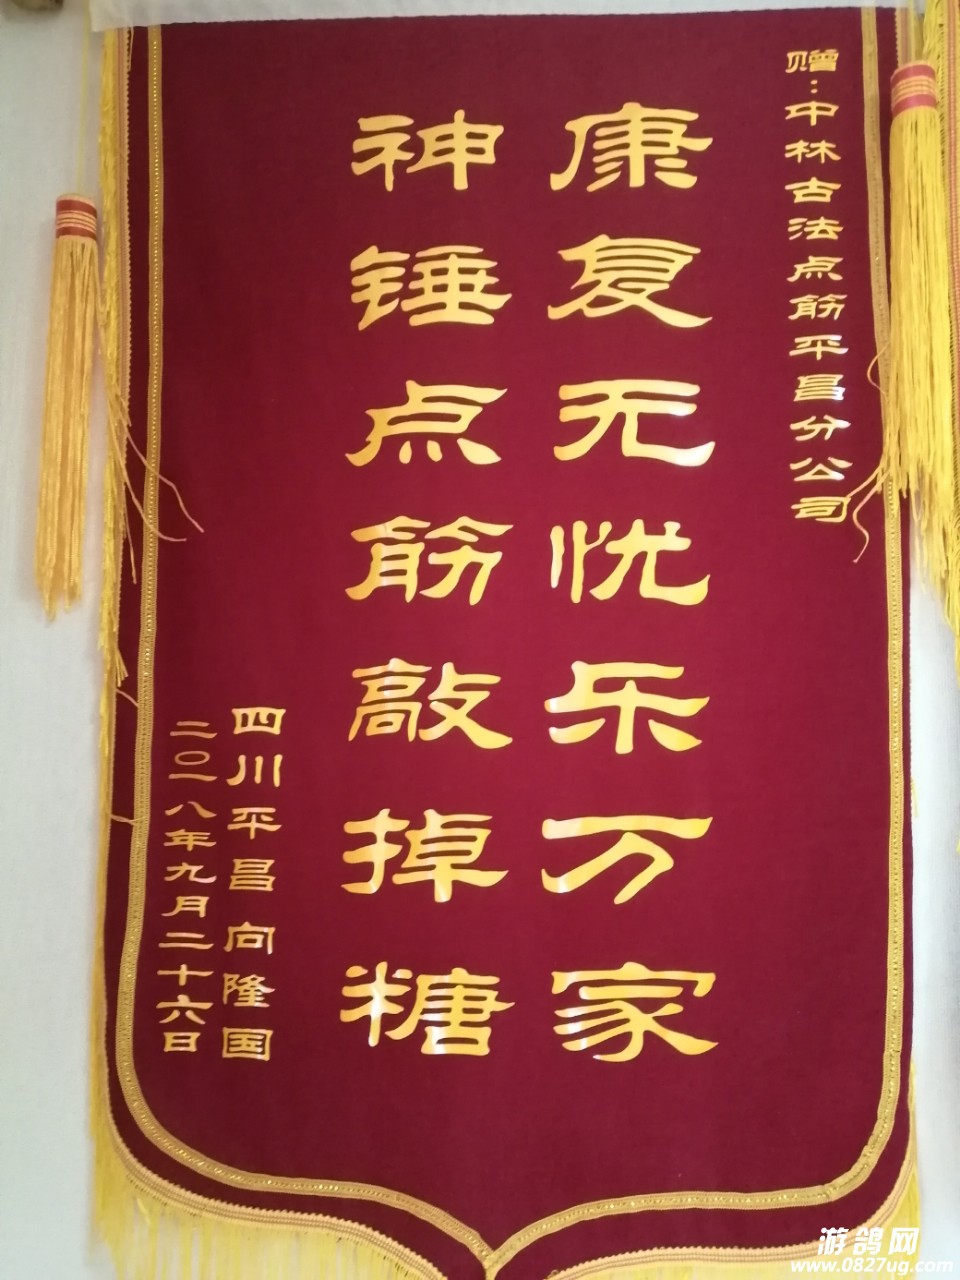 赠：中林古法点筋平昌分公司
康复无忧乐万家
神锤点筋敲掉糖
四川平昌向隆国
二〇一八年九月二十六日
游鸽网
www.0827ug.com